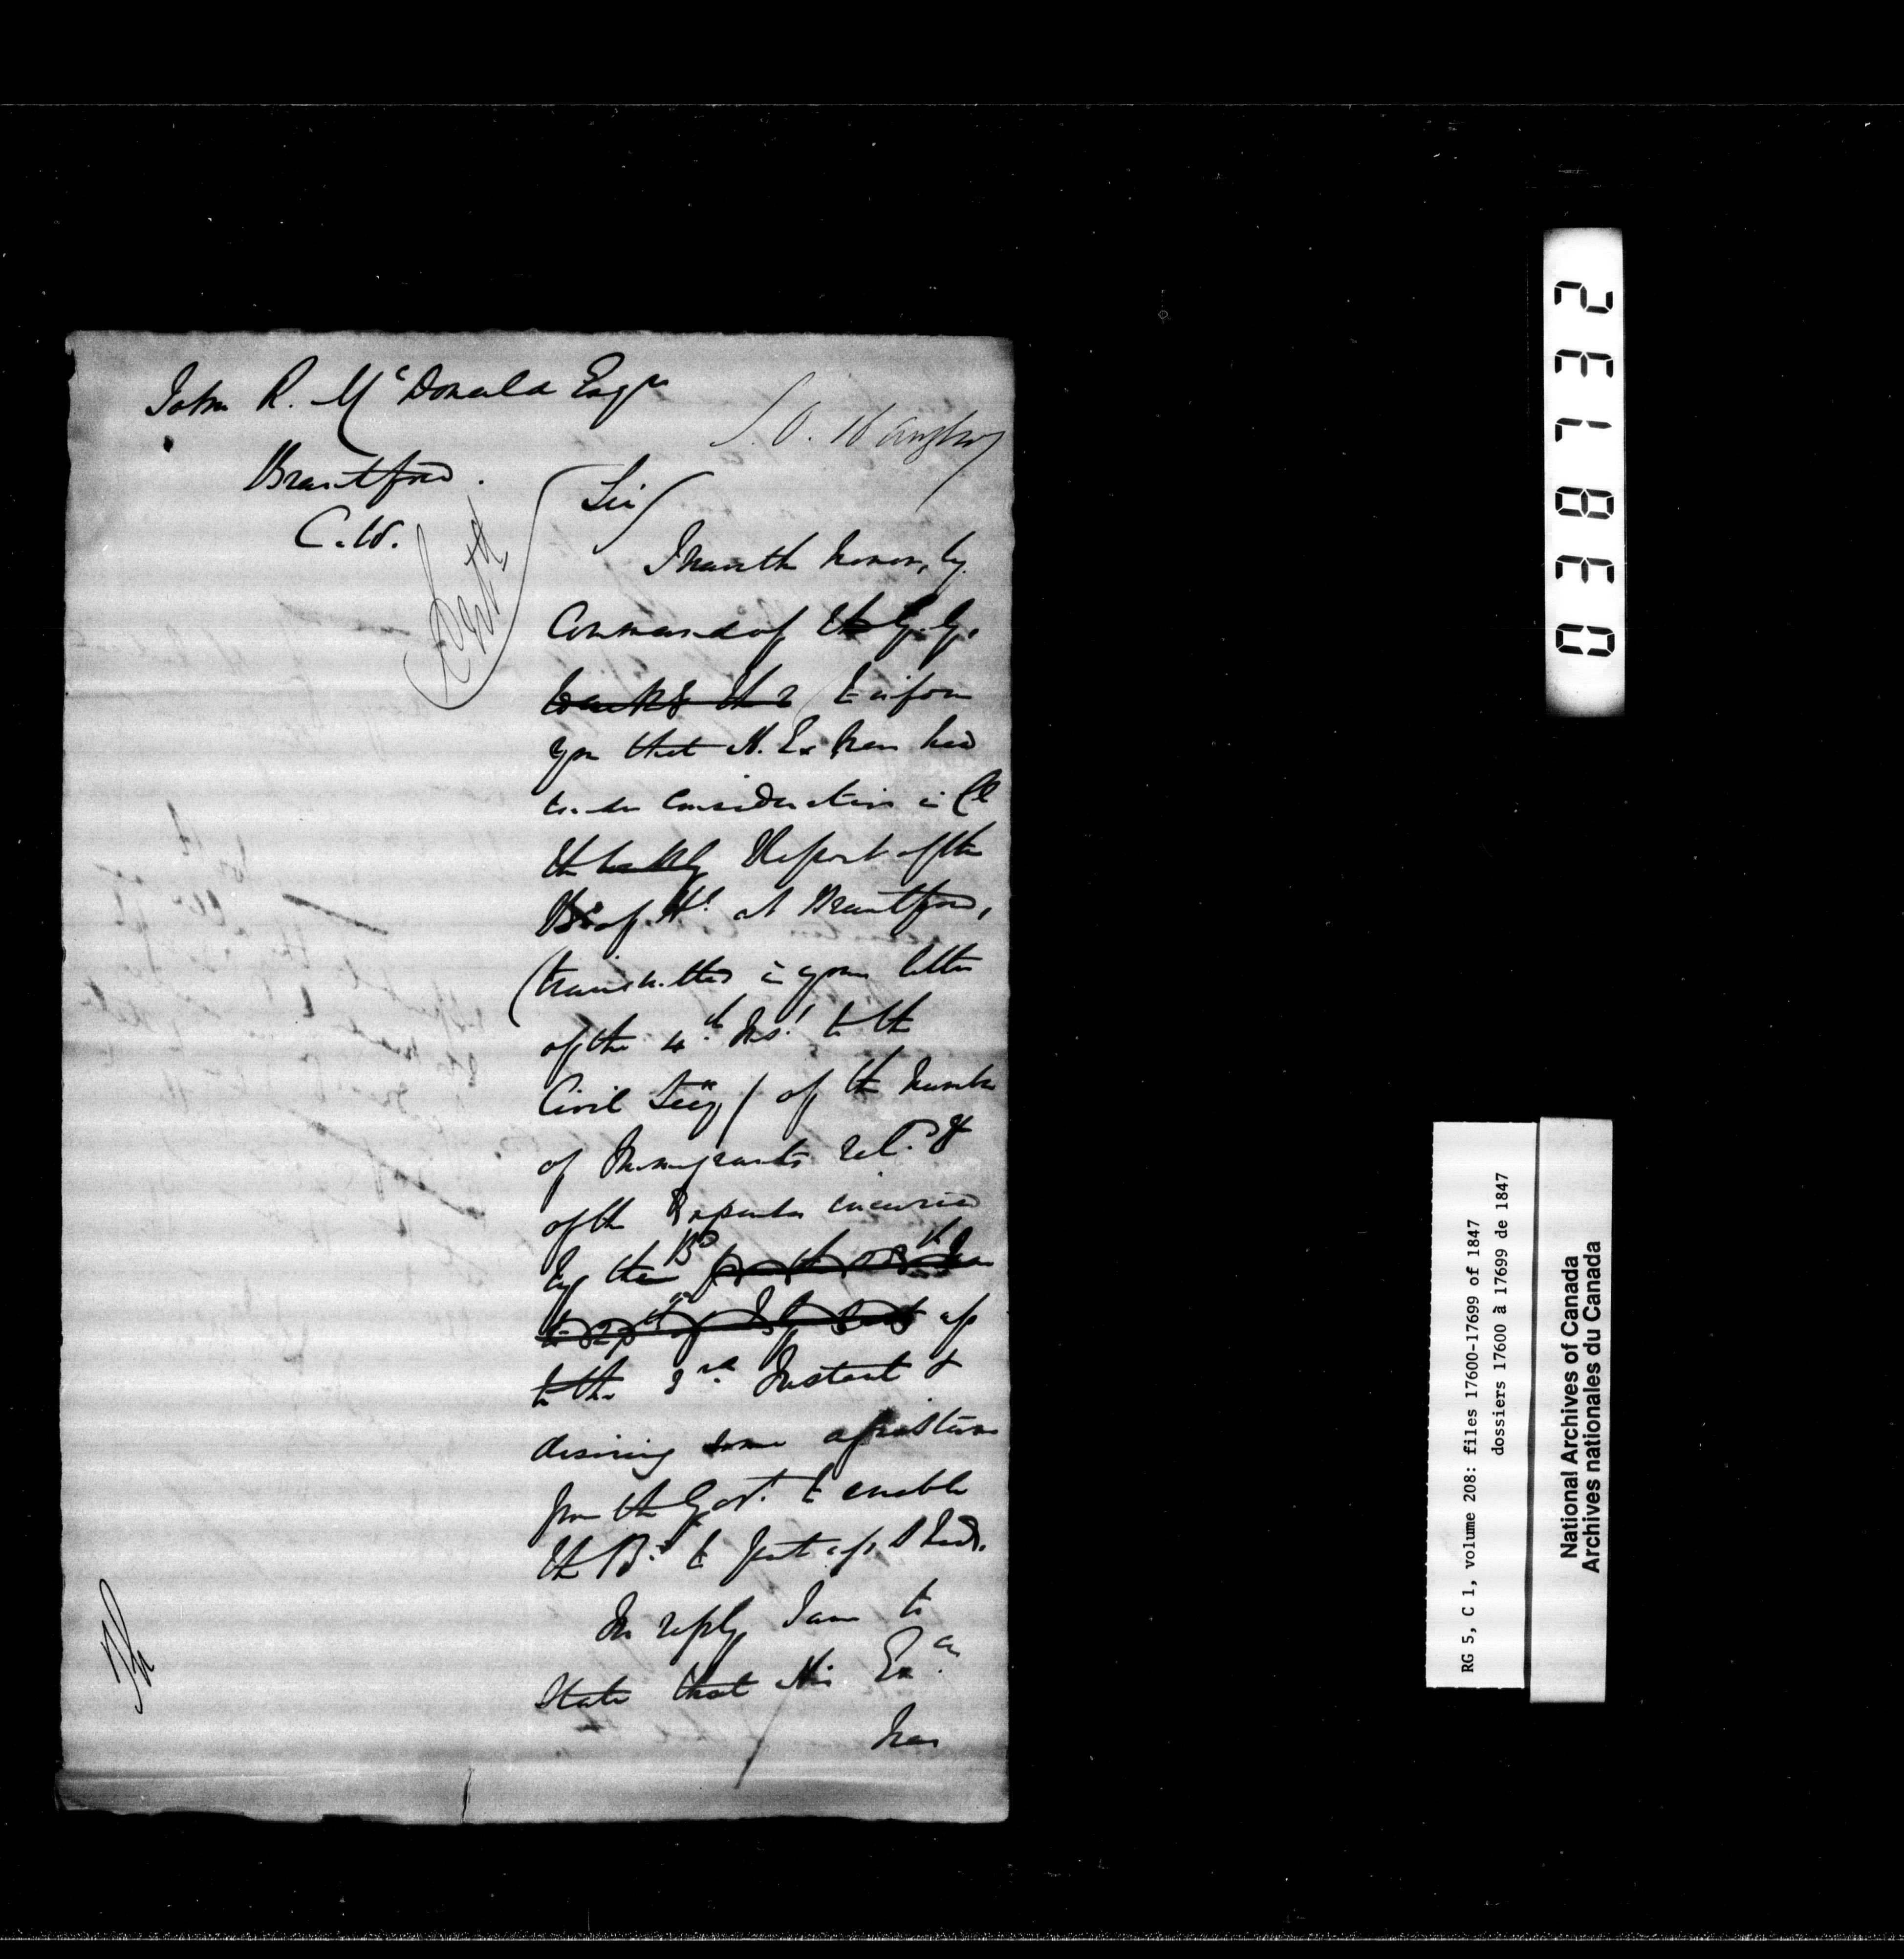 John R. McDonald Esqre
S.O. 16 Augt
Brantford.
C.W.
Sir/
I have the honor, by
Command of the G. G.
to inform
you that H. Ex has had
under consideration in Cl
the Report of the
Bd of Hh at Brantford,
(transmitted in your letter
of the 4th Inst to the
Civil Secy) of the number
of Immigrants rel. &
of the Expenses incurred
by the Bd up
to the 3rd Instant &
desiring some assistance
from the Govt to enable
the Bd to put up Sheds.
In reply I am to
State that His Excy
has
037832
RG 5, C 1, volume 208: files 17600-17699 of 1847
dossiers 17600 à 17699 de 1847
National Archives of Canada
Archives nationales du Canada